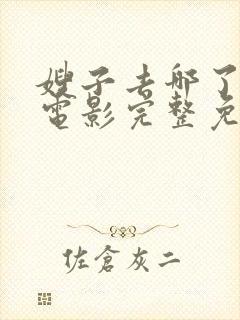 嫂子去哪了
电影完整免
佐倉灰二